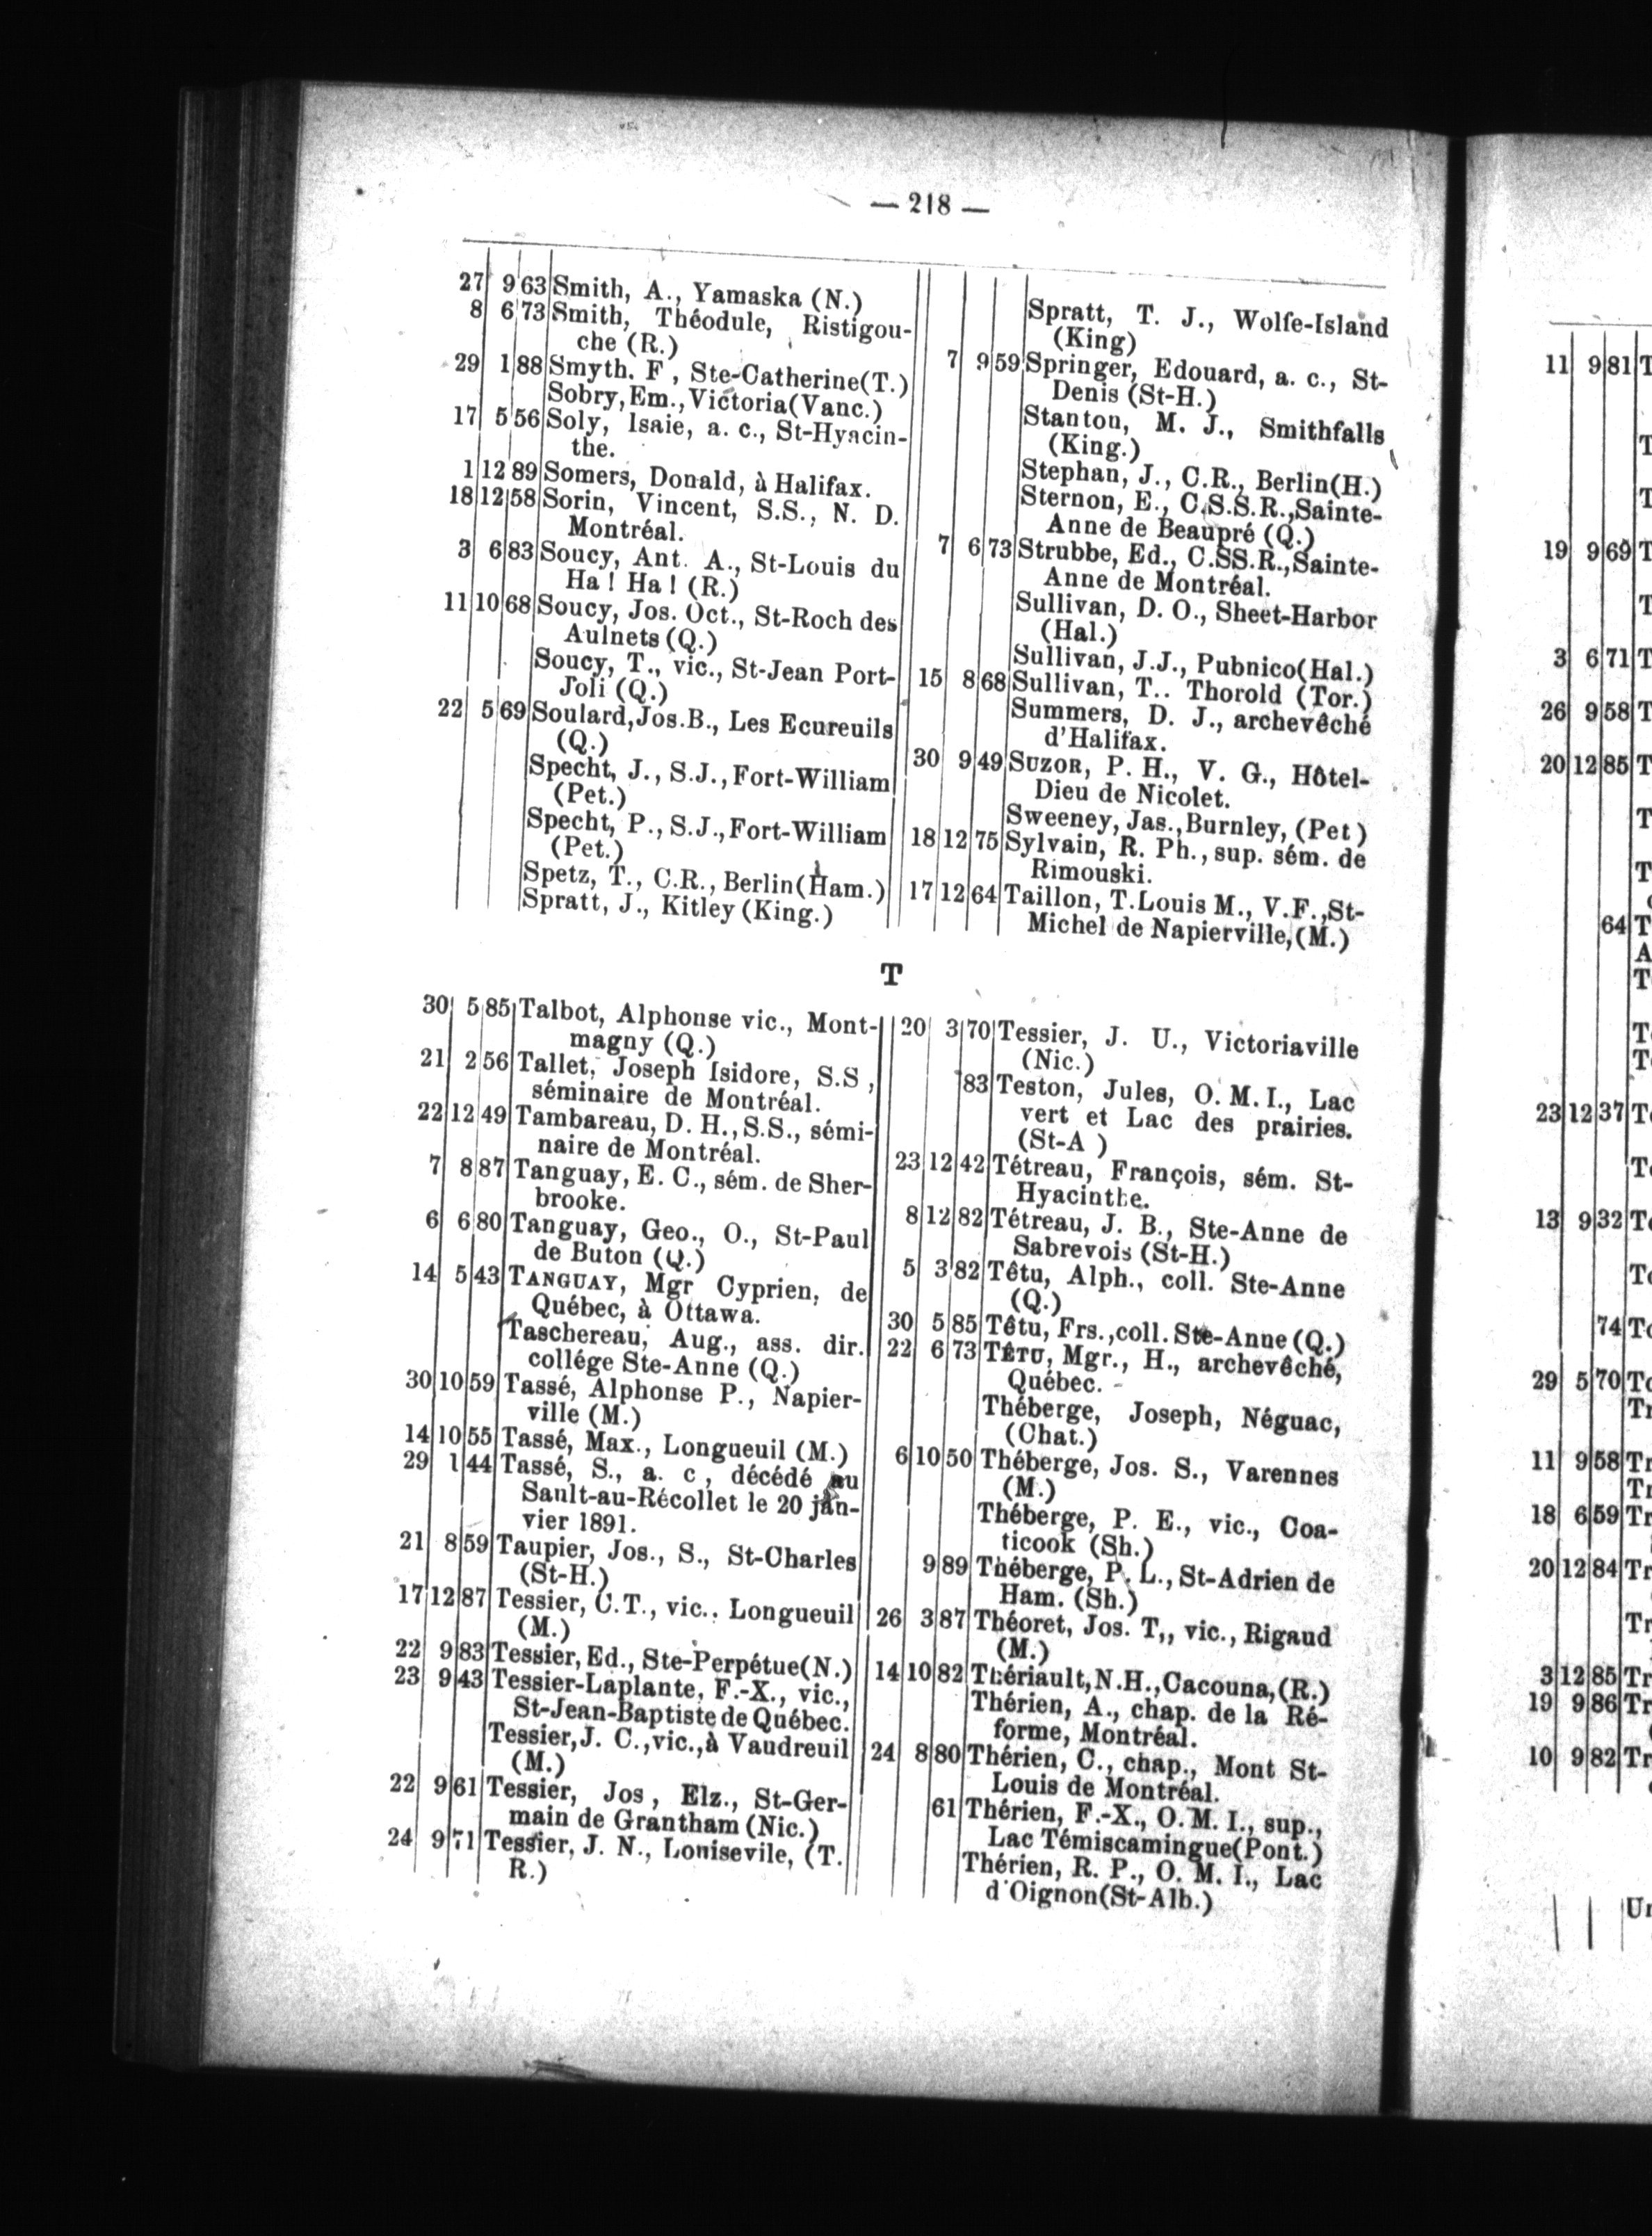 — 218 —
27 9 63 Smith, A., Yamaska (N.)
8 6 73 Smith, Théodule, Ristigou-
che (R.)
29 1 88 Smyth. F , Ste-Catherine(T.)
Sobry, Em., Victoria(Vanc.)
17 5 56 Soly, Isaie, a. c., St-Hyacin-
the.
1 12 89 Somers, Donald, à Halifax.
18 12 58 Sorin, Vincent, S.S., N. D.
Montréal.
3 6 83 Soucy, Ant. A., St-Louis du
Ha ! Ha ! (R.)
11 10 68 Soucy, Jos. Oct., St-Roch des
Aulnets (Q.)
Soucy, T., vic., St-Jean Port-
Joli (Q.)
22 5 69 Soulard, Jos.B., Les Ecureuils
(Q.)
Specht, J., S.J., Fort-William
(Pet.)
Specht, P., S.J., Fort-William
(Pet.)
Spetz, T., C.R., Berlin(Ham.)
Spratt, J., Kitley (King.)
Spratt, T. J., Wolfe-Island
(King)
7 9 59 Springer, Edouard, a. c., St-
Denis (St-H.)
Stanton, M. J., Smithfalls
(King.)
Stephan, J., C.R., Berlin(H.)
Sternon, E., C.S.S.R., Sainte-
Anne de Beaupré (Q.)
7 6 73 Strubbe, Ed., C.SS.R., Sainte-
Anne de Montréal.
Sullivan, D. O., Sheet-Harbor
(Hal.)
Sullivan, J.J., Pubnico(Hal.)
15 8 68 Sullivan, T.. Thorold (Tor.)
Summers, D. J., archevêché
d'Halifax.
30 9 49 SUZOR, P. H., V. G., Hôtel-
Dieu de Nicolet.
Sweeney, Jas., Burnley, (Pet )
18 12 75 Sylvain, R. Ph., sup. sém. de
Rimouski.
17 12 64 Taillon, T. Louis M., V.F., St-
Michel de Napierville, (M.)
T
30 5 85 Talbot, Alphonse vic., Mont-
magny (Q.)
21 2 56 Tallet, Joseph Isidore, S.S ,
séminaire de Montréal.
22 12 49 Tambareau, D. H., S.S., sémi-
naire de Montréal.
7 8 87 Tanguay, E. C., sém. de Sher-
brooke.
6 6 80 Tanguay, Geo., O., St-Paul
de Buton (Q.)
14 5 43 TANGUAY, Mgr Cyprien, de
Québec, à Ottawa.
Taschereau, Aug., ass. dir.
collége Ste-Anne (Q.)
30 10 59 Tassé, Alphonse P., Napier-
ville (M.)
14 10 55 Tassé, Max., Longueuil (M.)
29 1 44 Tassé, S., a. c , décédé au
Sault-au-Récollet le 20 jan-
vier 1891.
21 8 59 Taupier, Jos., S., St-Charles
(St-H.)
17 12 87 Tessier, C.T., vic., Longueuil
(M.)
22 9 83 Tessier, Ed., Ste-Perpétue(N.)
23 9 43 Tessier-Laplante, F.-X., vic.,
St-Jean-Baptiste de Québec.
Tessier, J. C., vic., à Vaudreuil
(M.)
22 9 61 Tessier, Jos , Elz., St-Ger-
main de Grantham (Nic.)
24 9 71 Tessier, J. N., Lonisevile, (T.
R.)
20 3 70 Tessier, J. U., Victoriaville
(Nic.)
83 Teston, Jules, O. M. I., Lac
vert et Lac des prairies.
(St-A )
23 12 42 Tétreau, François, sém. St-
Hyacinthe.
8 12 82 Tétreau, J. B., Ste-Anne de
Sabrevois (St-H.)
5 3 82 Têtu, Alph., coll. Ste-Anne
(Q.)
30 5 85 Têtu, Frs., coll. Ste-Anne (Q.)
22 6 73 TÊTU, Mgr., H., archevêché,
Québec.
Théberge, Joseph, Néguac,
(Chat.)
6 10 50 Théberge, Jos. S., Varennes
(M.)
Théberge, P. E., vic., Coa-
ticook (Sh.)
9 89 Théberge, P. L., St-Adrien de
Ham. (Sh.)
26 3 87 Théoret, Jos. T,, vic., Rigaud
(M.)
14 10 82 Thériault, N.H., Cacouna, (R.)
Thérien, A., chap. de la Ré-
forme, Montréal.
24 8 80 Thérien, C., chap., Mont St-
Louis de Montréal.
61 Thérien, F.-X., O. M. I., sup.,
Lac Témiscamingue(Pont.)
Thérien, R. P., O. M. I., Lac
d'Oignon(St-Alb.)
11 9 81
19 9 69
3 6 71
26 9 58
20 12 85
64
23 12 37
13 9 32
74
29 5 70
11 9 58
18 6 59
20 12 84
3 12 85
19 9 86
10 9 82